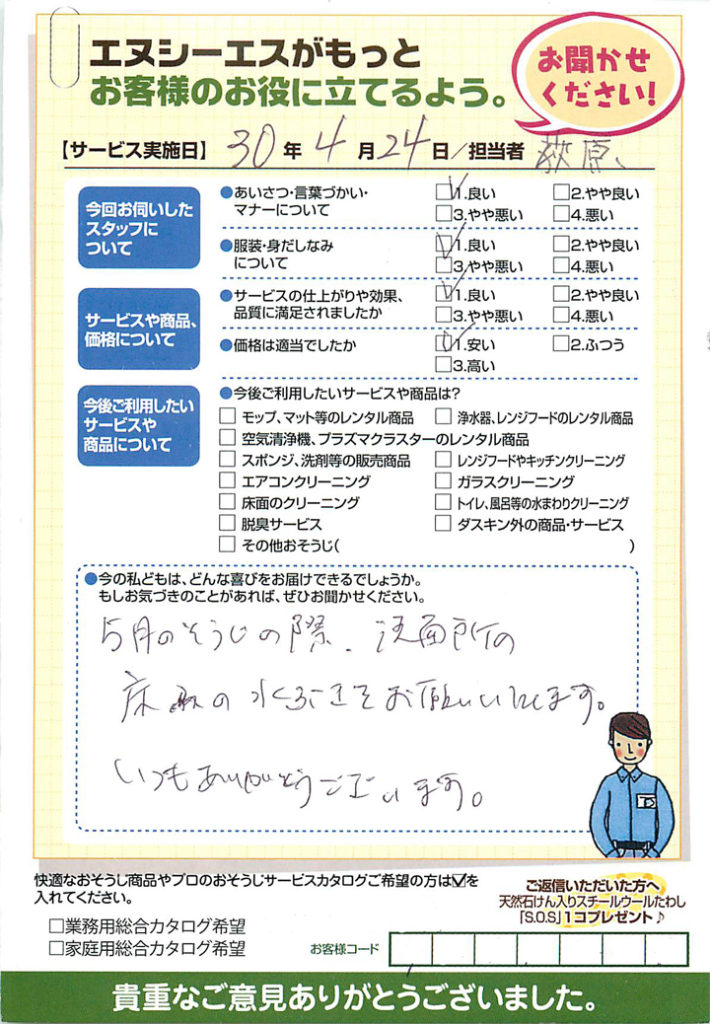 エヌシーエスがもっと
お客様のお役に立てるよう。
お聞かせ
ください!
【サービス実施日】 30年 4月24日/担当者 萩原
今回お伺いした
スタッフに
ついて
●あいさつ・言葉づかい・
マナーについて
☑1.良い □2.やや良い
□3.やや悪い □4.悪い
●服装・身だしなみ
について
☑1.良い □2.やや良い
□3.やや悪い □4.悪い
サービスや商品、
価格について
●サービスの仕上がりや効果、
品質に満足されましたか
☑1.良い □2.やや良い
□3.やや悪い □4.悪い
●価格は適当でしたか
☑1.安い □2.ふつう
□3.高い
今後ご利用したい
サービスや
商品について
●今後ご利用したいサービスや商品は?
□ モップ、マット等のレンタル商品 □ 浄水器、レンジフードのレンタル商品
□ 空気清浄機、プラズマクラスターのレンタル商品
□ スポンジ、洗剤等の販売商品 □ レンジフードやキッチンクリーニング
□ エアコンクリーニング □ ガラスクリーニング
□ 床面のクリーニング □ トイレ、風呂等の水まわりクリーニング
□ 脱臭サービス □ ダスキン外の商品・サービス
□ その他おそうじ( )
●今の私どもは、どんな喜びをお届けできるでしょうか。
もしお気づきのことがあれば、ぜひお聞かせください。
5月のそうじの際、洗面所の
床の水ぶきをお願いいたします。
いつもありがとうございます。
快適なおそうじ商品やプロのおそうじサービスカタログご希望の方は☑を
入れてください。
□業務用総合カタログ希望
□家庭用総合カタログ希望
お客様コード
ご返信いただいた方へ
天然石けん入りスチールウールたわし
「S.O.S」1コプレゼント♪
貴重なご意見ありがとうございました。